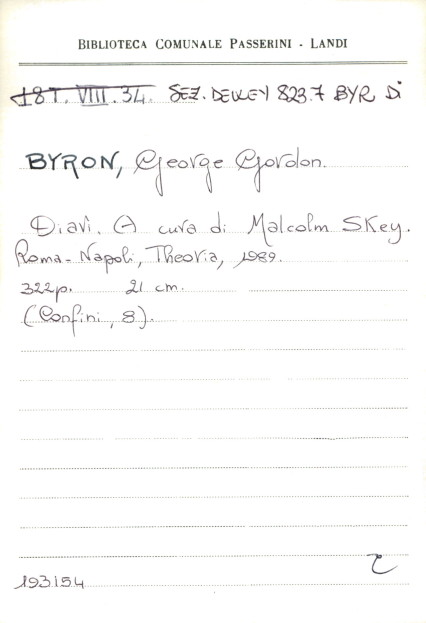 BIBLIOTECA COMUNALE PASSERINI - LANDI
18T. VIII. 34. SEZ. DEWEY 823.7 BYR Di
BYRON, George Gordon.
Diari. A cura di Malcolm Skey.
Roma-Napoli, Theoria, 1989.
322p. 21 cm.
(Confini, 8).
193154